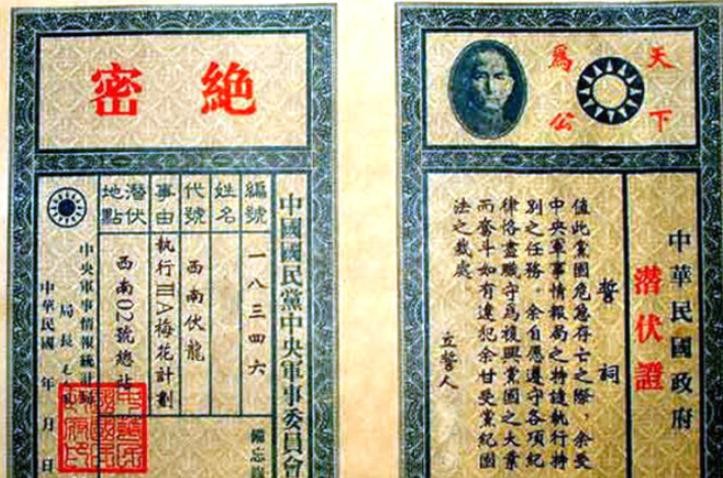 天下
為公
中華民國政府
潜伏證
誓詞
值此黨國危急存亡之際，余受
中央軍事情報局之特遣執行特
別之任務。余自愿遵守各項紀
律恪盡職守爲複興黨國之大業
而奮斗如有違犯余甘受黨紀國
法之裁處
立誓人
絕密
中國國民黨中央軍事委員會
備忘
編號 一八三四六
姓名
代號 西南伏龍
事由 執行ⅢA梅花計劃
潛伏地點 西南02號總站
中央軍事情報統計局
局長 毛
中華民國 年 月 日